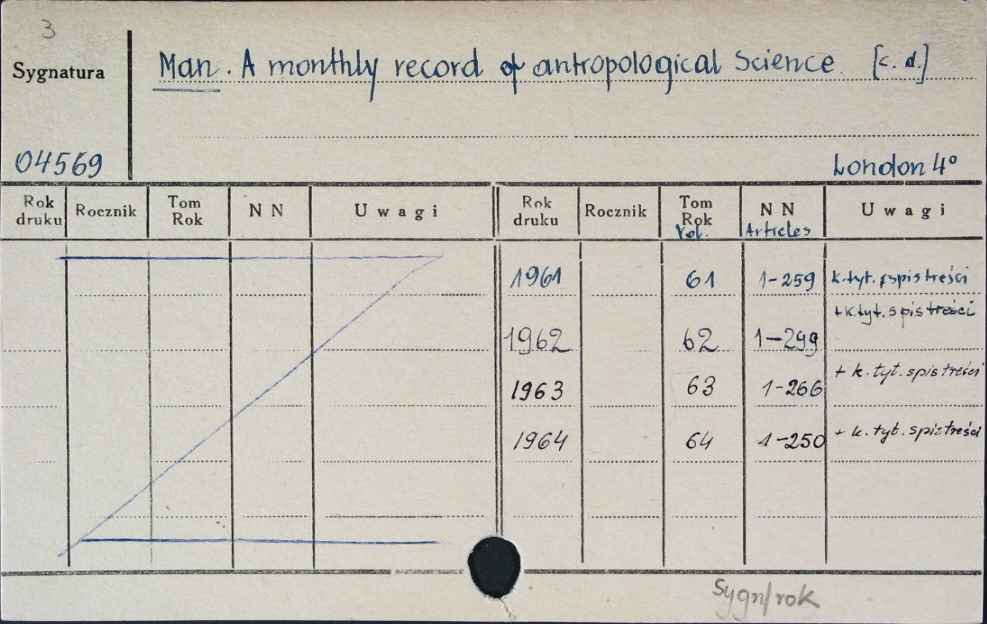 3
Sygnatura
Man. A monthly record of antropological Science [c. d.]
04569
London 4°
Rok druku Rocznik Tom Rok NN Uwagi Rok druku Rocznik Tom Rok Vol. NN Articles Uwagi
1961 61 1-259 k.tyt. spis treści
1962 62 1-299 +k.tyt. spis treści
1963 63 1-266 + k. tyt. spis treści
1964 64 1-250 + k. tyt. spis treści
Sygn/rok